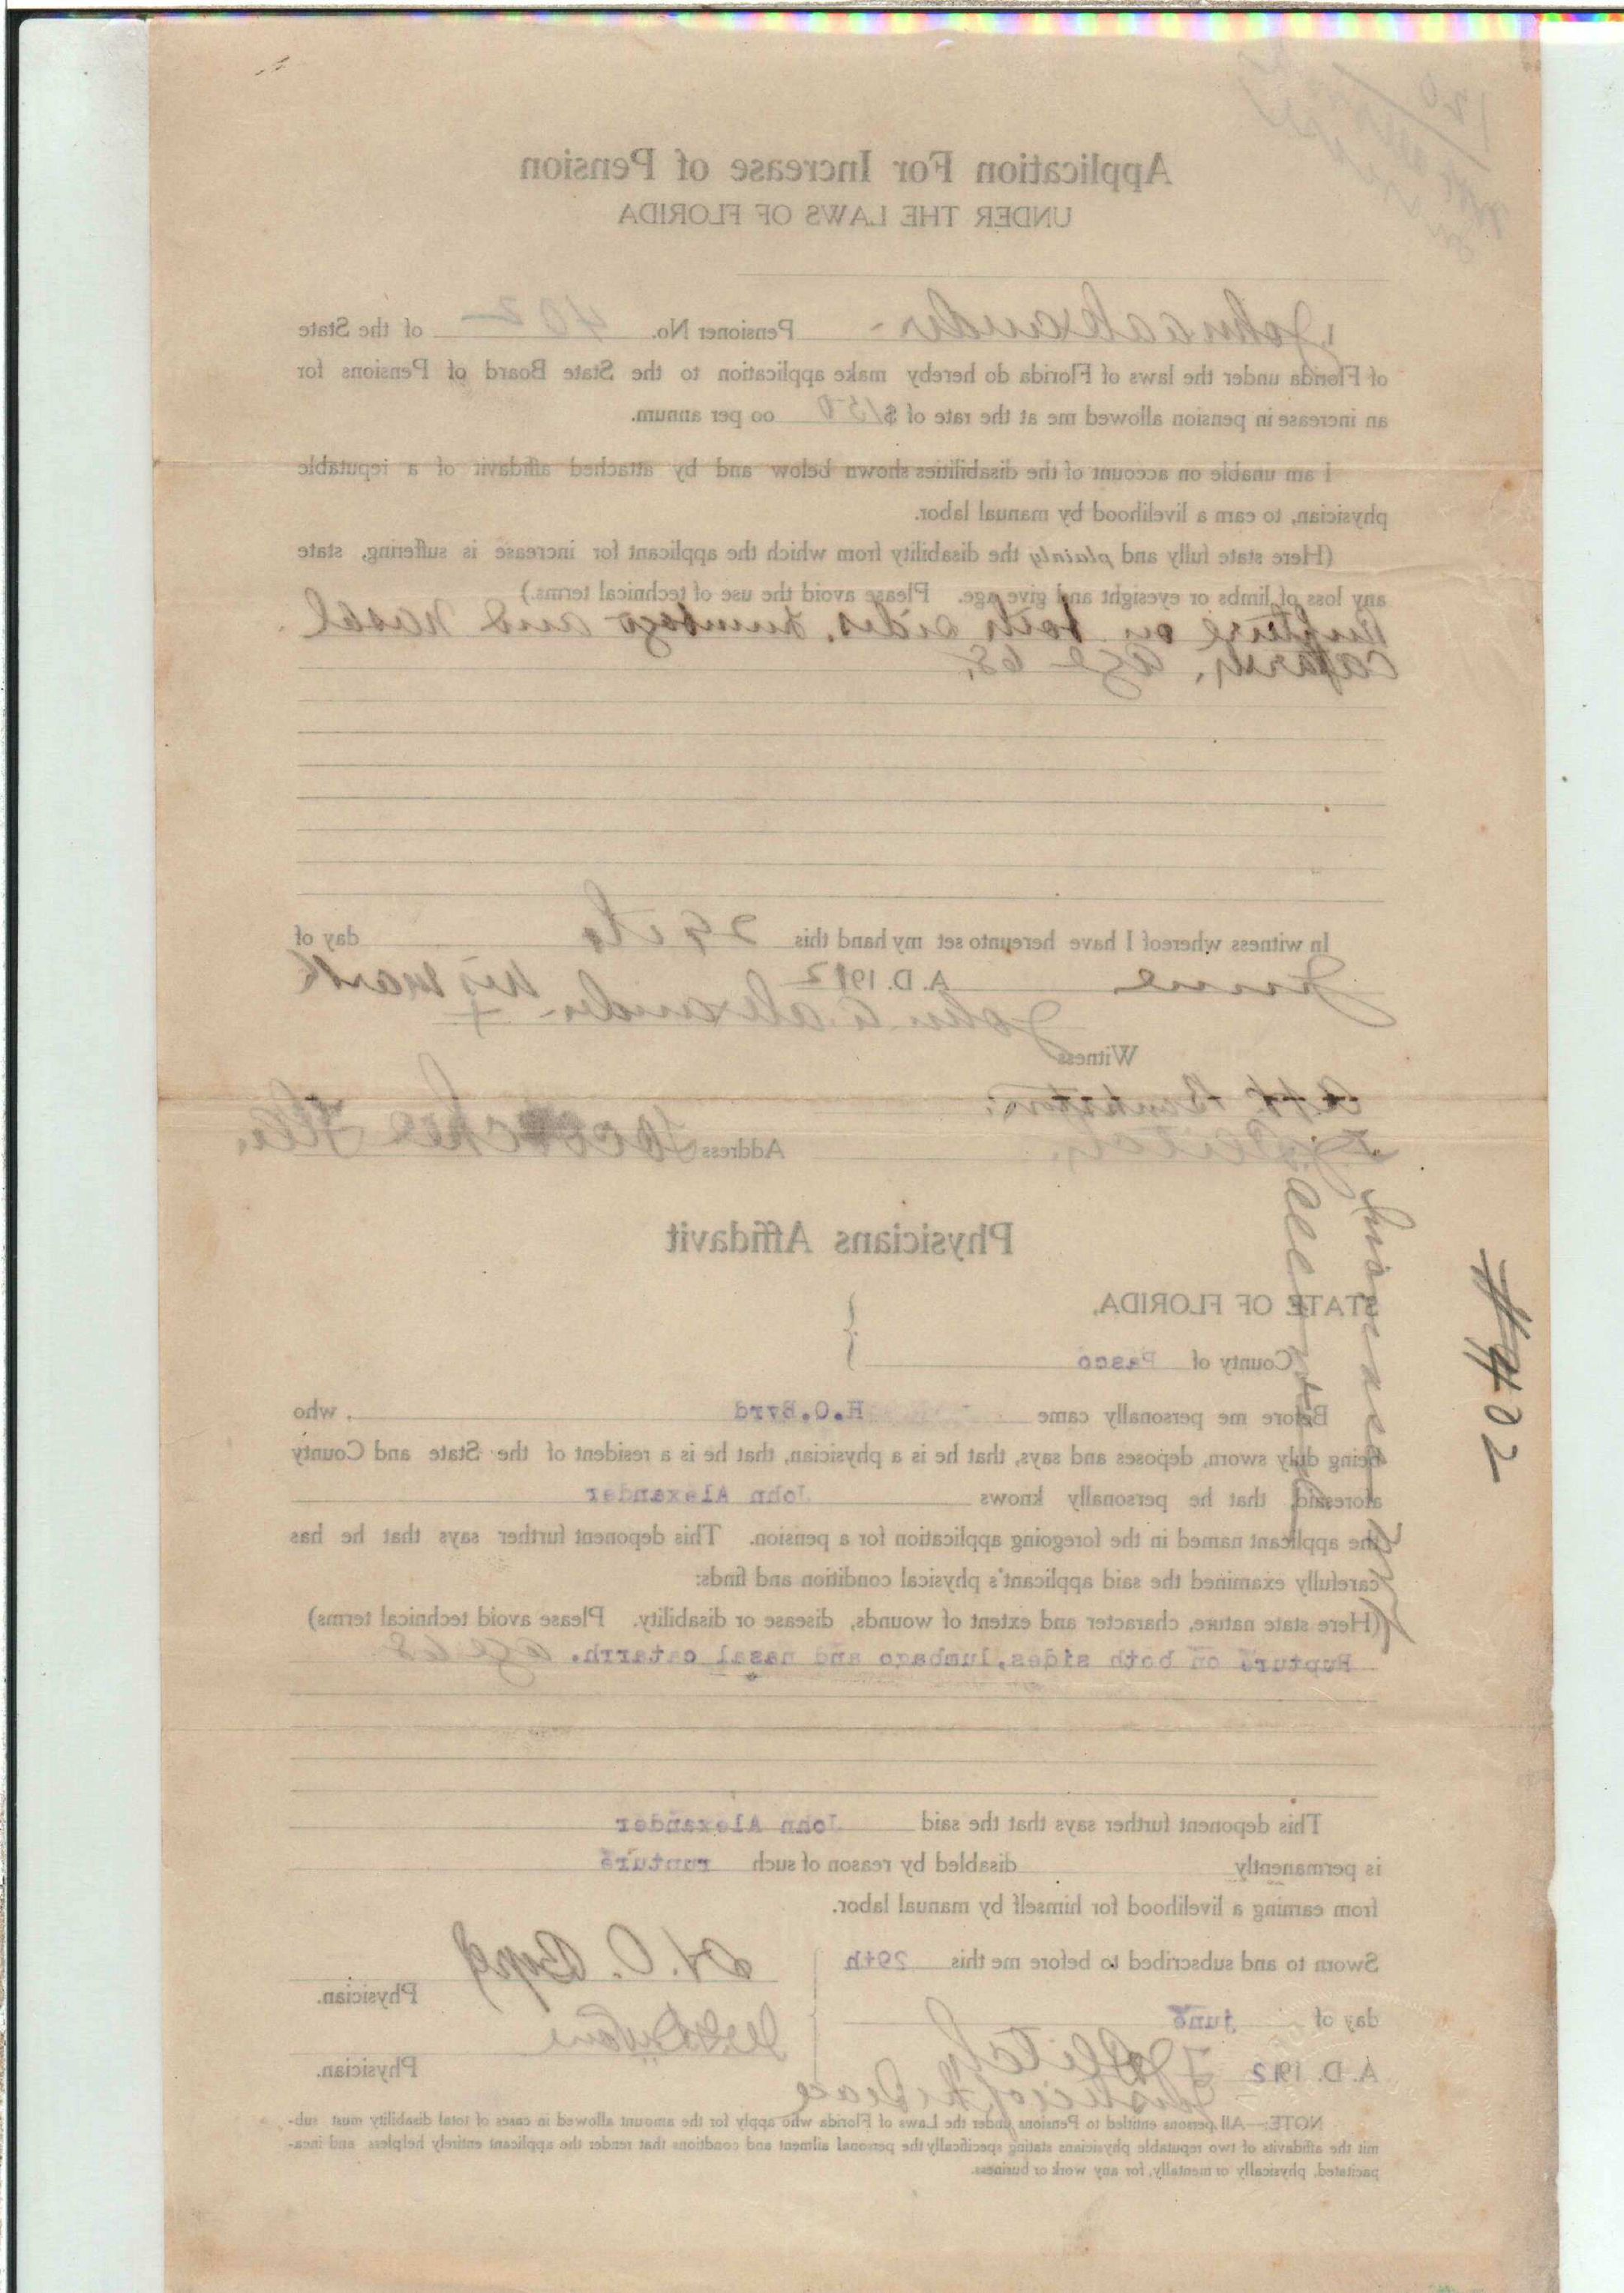 Application For Increase of Pension
UNDER THE LAWS OF FLORIDA
I, John Alexander Pensioner No. 402 of the State
of Florida under the laws of Florida do hereby make application to the State Board of Pensions for
an increase in pension allowed me at the rate of $150 oo per annum.
I am unable on account of the disabilities shown below and by attached affidavit of a reputable
physician, to earn a livelihood by manual labor.
(Here state fully and plainly the disability from which the applicant for increase is suffering, state
any loss of limbs or eyesight and give age. Please avoid the use of technical terms.)
Rupture on both sides. Lumbago and nasal
catarrh, age 68.
In witness whereof I have hereunto set my hand this 29th day of
June A. D. 1912
his mark
John Alexander +
Witness
Address Lacoochee Fla.
Physicians Affidavit
STATE OF FLORIDA,
County of Pasco
Before me personally came H.O.Byrd, who
being duly sworn, deposes and says, that he is a physician, that he is a resident of the State and County
aforesaid, that he personally knows John Alexander
the applicant named in the foregoing application for a pension. This deponent further says that he has
carefully examined the said applicant's physical condition and finds:
(Here state nature, character and extent of wounds, disease or disability. Please avoid technical terms)
Rupture on both sides,lumbago and nasal catarrh. age 68
This deponent further says that the said John Alexander
is permanently disabled by reason of such rupture
from earning a livelihood for himself by manual labor.
Sworn to and subscribed to before me this 29th
H. O. Byrd
Physician.
day of June
A. D. 1912
Physician.
Justice of the Peace
NOTE:—All persons entitled to Pensions under the Laws of Florida who apply for the amount allowed in cases of total disability must sub-
mit the affidavits of two reputable physicians stating specifically the personal ailment and conditions that render the applicant entirely helpless and inca-
pacitated, physically or mentally, for any work or business.
# 402